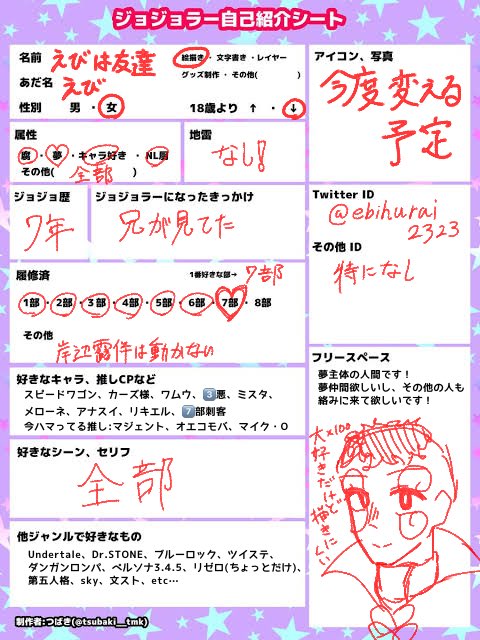 ジョジョラー自己紹介シート
名前 えびは友達
絵描き・文字書き・レイヤー
グッズ制作・その他( )
あだ名 えび
性別 男 ・ 女
18歳より ↑ ・ ↓
アイコン、写真
今度変える
予定
属性
腐・夢・キャラ好き・NL厨
その他( 全部 )
地雷
なし!
ジョジョ歴
7年
ジョジョラーになったきっかけ
兄が見てた
Twitter ID
@ebihurai
2323
その他 ID
特になし
履修済
1番好きな部→ 7部
1部・2部・3部・4部・5部・6部・7部・8部
その他
岸辺露伴は動かない
好きなキャラ、推しCPなど
スピードワゴン、カーズ様、ワムウ、3悪、ミスタ、
メローネ、アナスイ、リキエル、7部刺客
今ハマってる推し:マジェント、オエコモバ、マイク・O
好きなシーン、セリフ
全部
他ジャンルで好きなもの
Undertale、Dr.STONE、ブルーロック、ツイステ、
ダンガンロンパ、ペルソナ3.4.5、リゼロ(ちょっとだけ)、
第五人格、sky、文スト、etc…
フリースペース
夢主体の人間です!
夢仲間欲しいし、その他の人も
絡みに来て欲しいです!
大×100
好きだけど
描きにくい
制作者:つばき(@tsubaki__tmk)